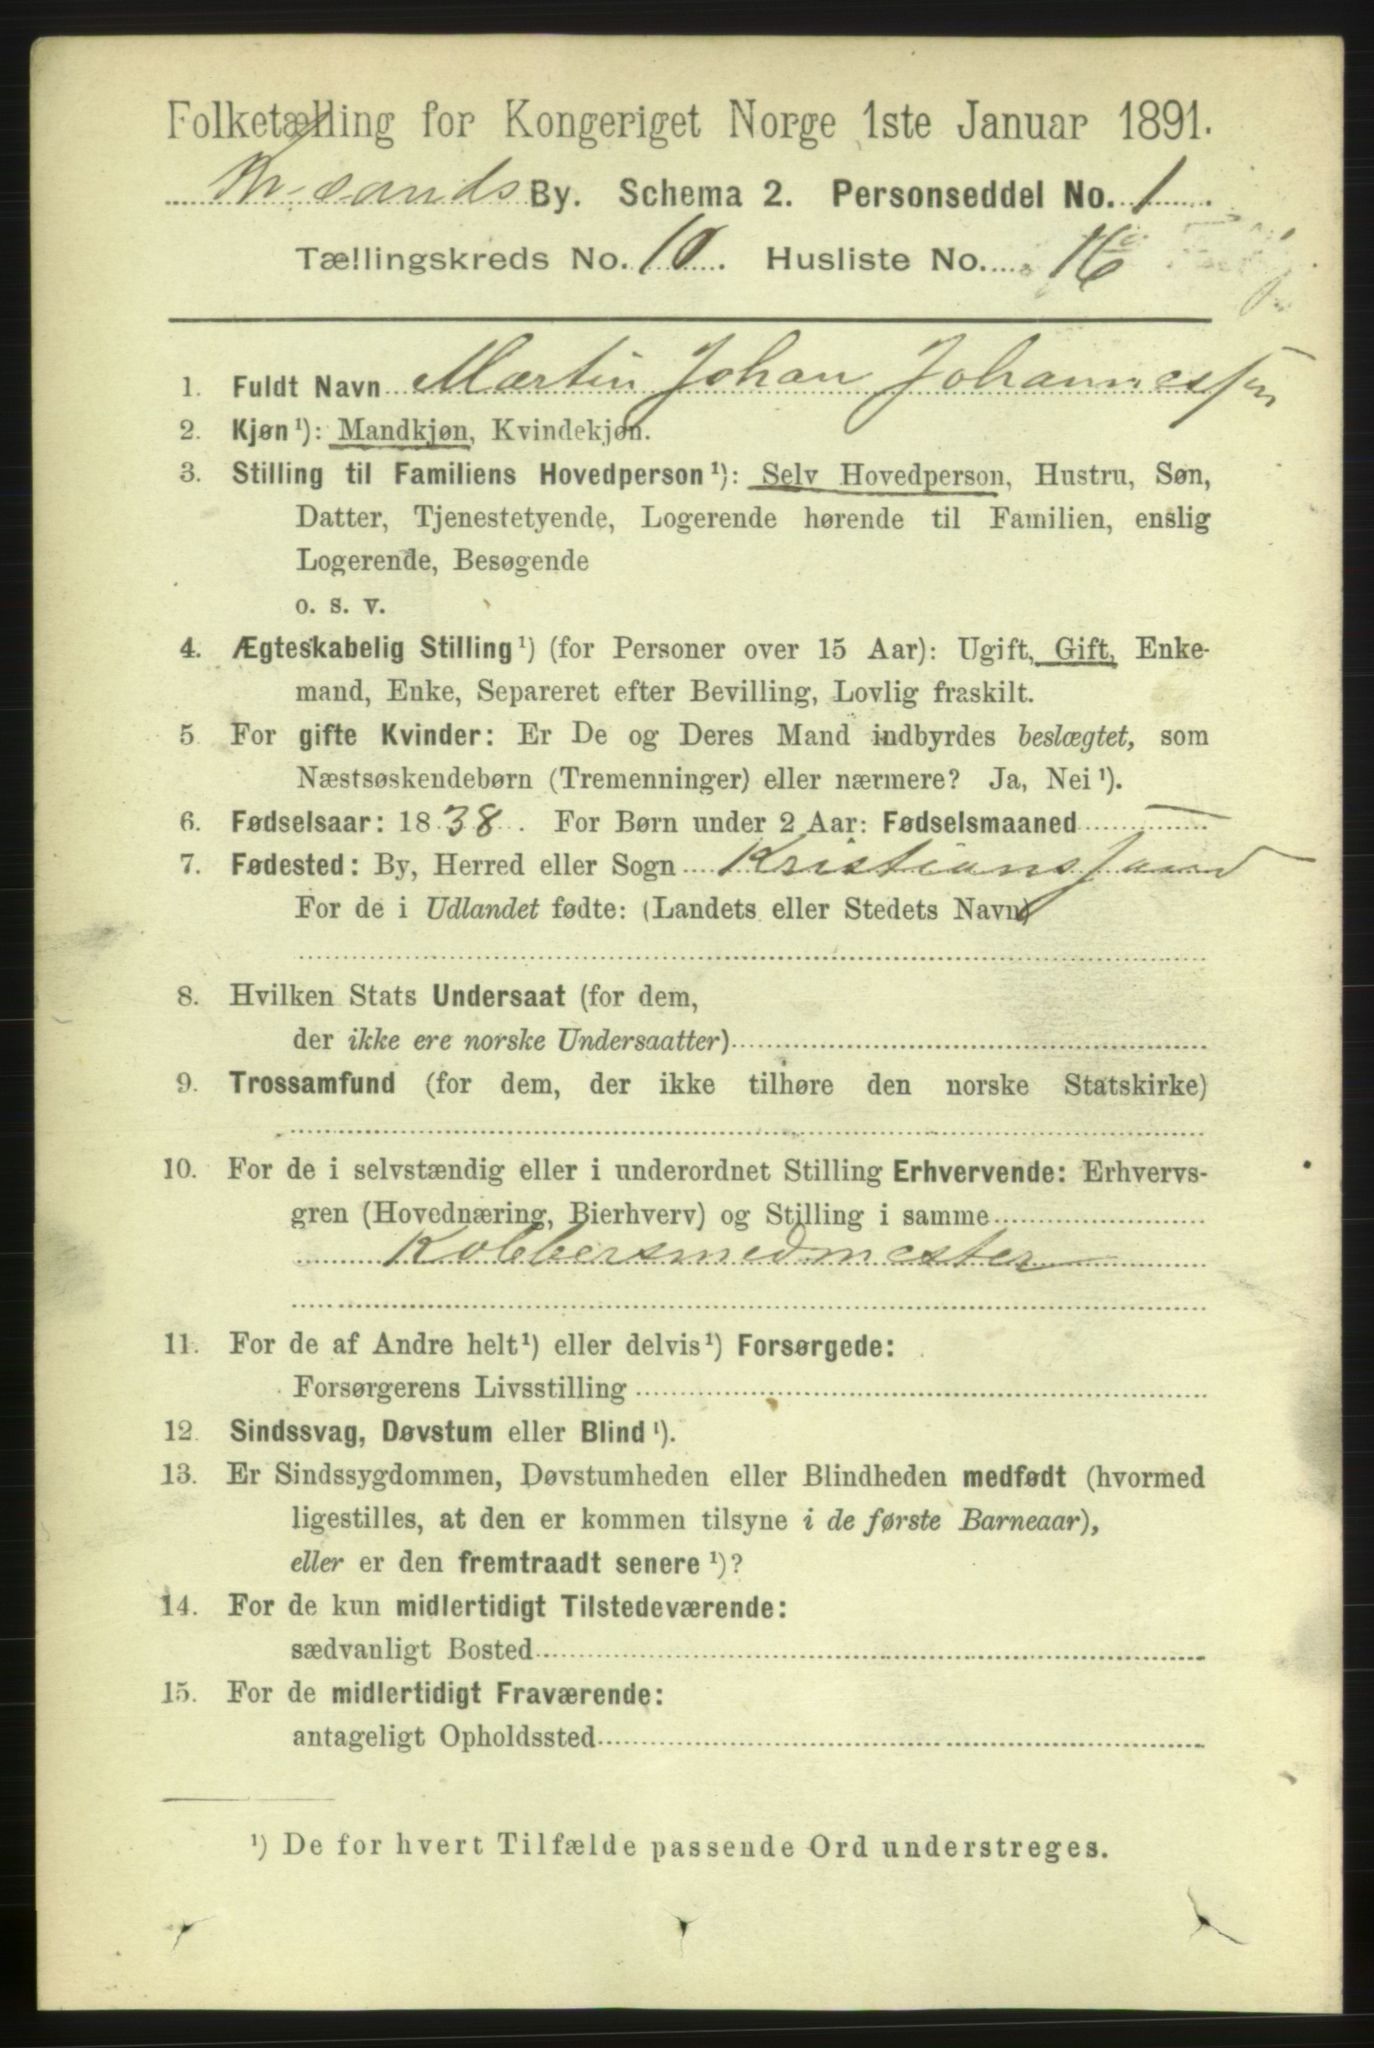 Folketælling for Kongeriget Norge 1ste Januar 1891.
Kr.sands By. Schema 2. Personseddel No. 1
Tællingskreds No. 10. Husliste No. 16
1. Fuldt Navn Martin Johan Johannessen
2. Kjøn¹): Mandkjøn, Kvindekjøn.
3. Stilling til Familiens Hovedperson¹): Selv Hovedperson, Hustru, Søn,
Datter, Tjenestetyende, Logerende hørende til Familien, enslig
Logerende, Besøgende
o. s. v.
4. Ægteskabelig Stilling¹) (for Personer over 15 Aar): Ugift, Gift, Enke-
mand, Enke, Separeret efter Bevilling, Lovlig fraskilt.
5 For gifte Kvinder: Er De og Deres Mand indbyrdes beslægtet, som
Næstsøskendebørn (Tremenninger) eller nærmere? Ja, Nei¹).
6. Fødselsaar: 1838. For Børn under 2 Aar: Fødselsmaaned
7. Fødested: By, Herred eller Sogn Kristianssand
For de i Udlandet fødte: (Landets eller Stedets Navn)
8. Hvilken Stats Undersaat (for dem,
der ikke ere norske Undersaatter)
9. Trossamfund (for dem, der ikke tilhøre den norske Statskirke)
10. For de i selvstændig eller i underordnet Stilling Erhvervende: Erhvervs-
gren (Hovednæring, Bierhverv) og Stilling i samme
Kobbersmedmester
11. For de af Andre helt¹) eller delvis¹) Forsørgede:
Forsørgerens Livsstilling
12. Sindssvag, Døvstum eller Blind¹).
13. Er Sindssygdommen, Døvstumheden eller Blindheden medfødt (hvormed
ligestilles, at den er kommen tilsyne i de første Barneaar),
eller er den fremtraadt senere¹)?
14. For de kun midlertidigt Tilstedeværende:
sædvanligt Bosted
15. For de midlertidigt Fraværende:
antageligt Opholdssted
¹) De for hvert Tilfælde passende Ord understreges.